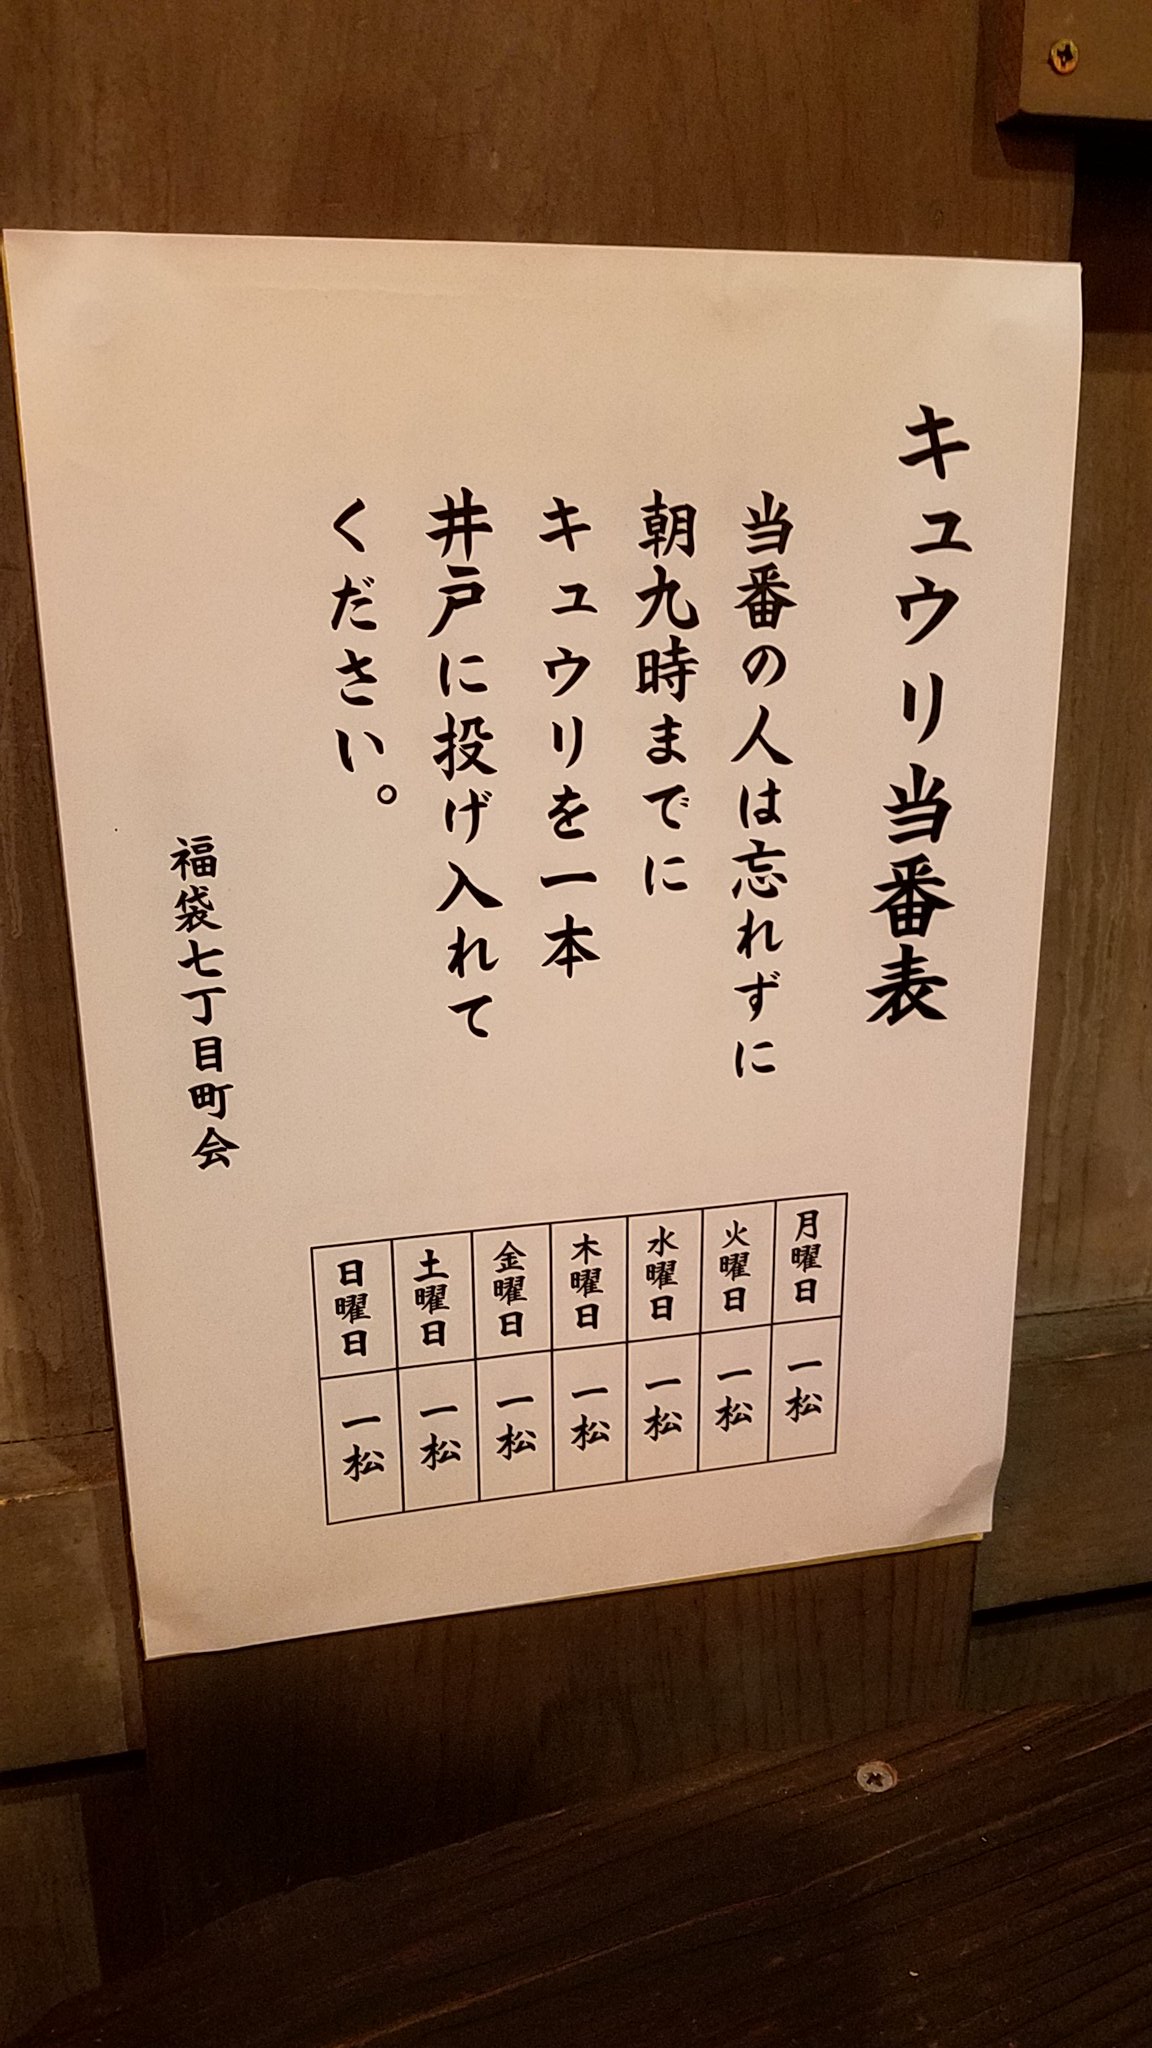 キュウリ当番表
当番の人は忘れずに
朝九時までに
キュウリを一本
井戸に投げ入れて
ください。
福袋七丁目町会
月曜日 一松
火曜日 一松
水曜日 一松
木曜日 一松
金曜日 一松
土曜日 一松
日曜日 一松